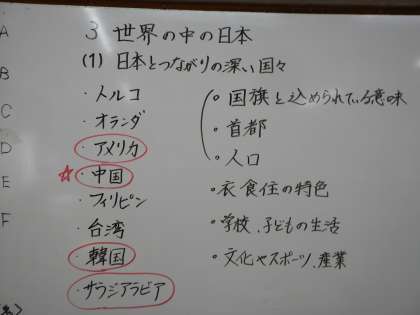 3 世界の中の日本
(1) 日本とつながりの深い国々
A
B
C
D
E
F
・トルコ
・オランダ
・アメリカ
☆・中国
・フィリピン
・台湾
・韓国
・サウジアラビア
・国旗と込められている意味
・首都
・人口
・衣食住の特色
・学校、子どもの生活
・文化やスポーツ、産業